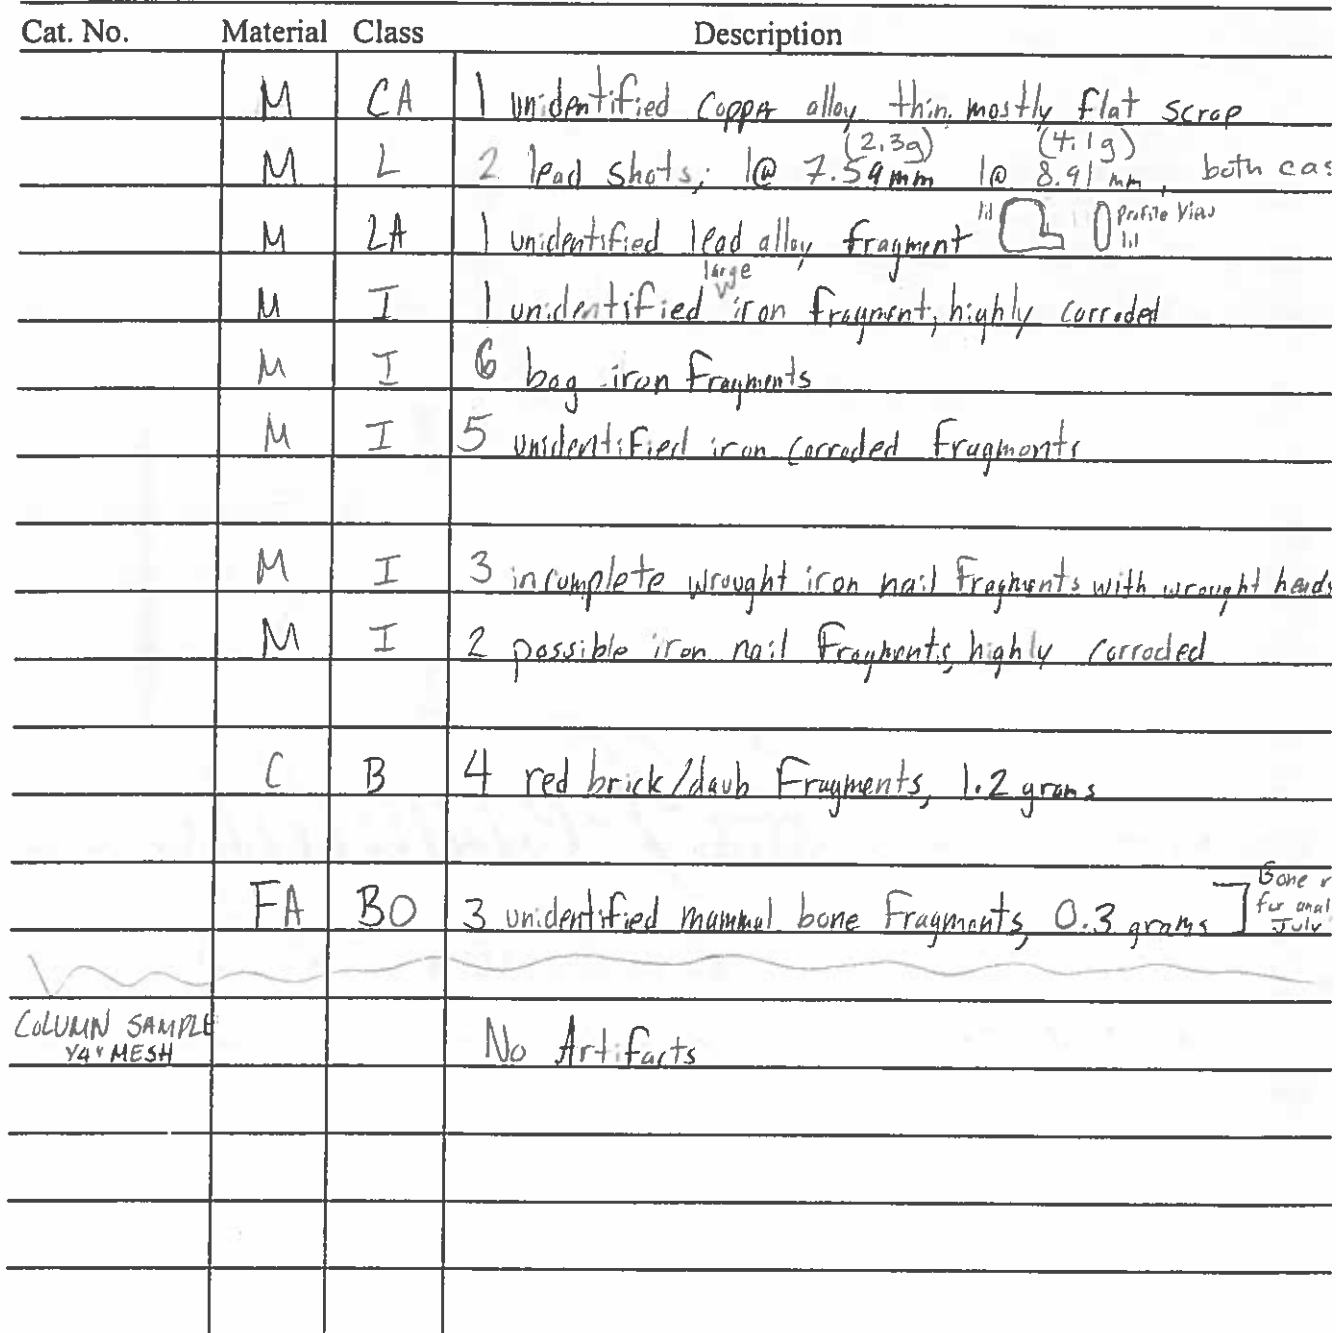 Cat. No. Material Class Description
M CA 1 unidentified copper alloy thin, mostly flat scrap
(2.3g) (4.1g)
M L 2 lead shots; 1@ 7.59mm 1@ 8.91mm, both cas
M LA 1 unidentified lead alloy fragment 1:1 Profile View 1:1
large
M I 1 unidentified iron fragment, highly corroded
M I 6 bog iron fragments
M I 5 unidentified iron corroded fragments
M I 3 incomplete wrought iron nail fragments with wrought heads
M I 2 possible iron nail fragments, highly corroded
C B 4 red brick/daub fragments, 1.2 grams
FA BO 3 unidentified mammal bone fragments, 0.3 grams
Bone
for anal
July
COLUMN SAMPLE No Artifacts
1/4" MESH